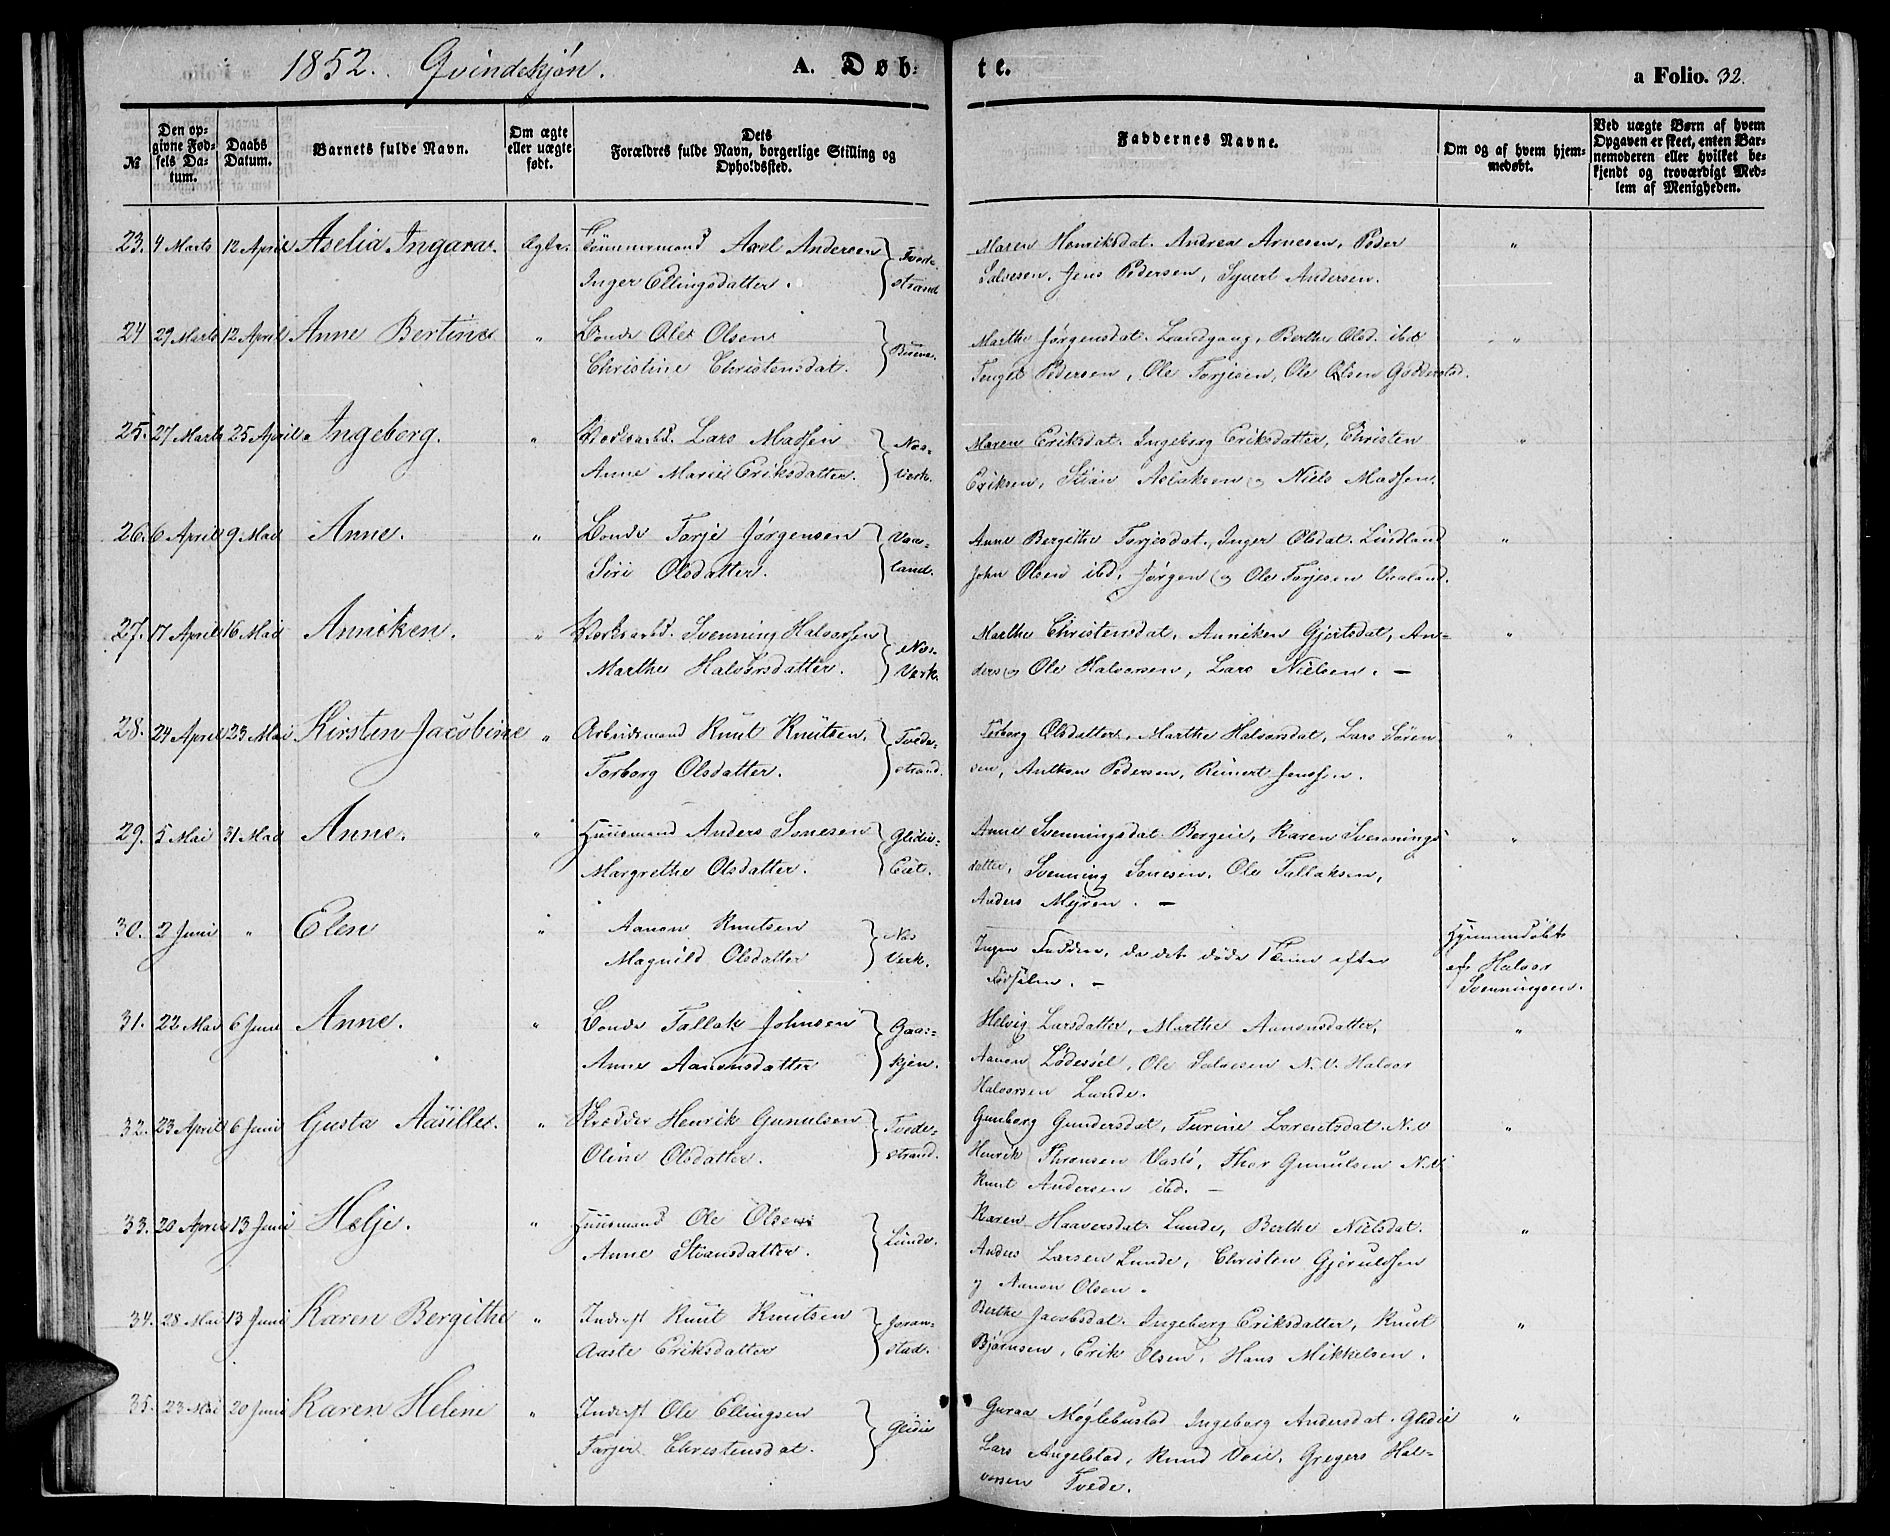 1852. Qvindekjøn. A. Døb- te. a Folio. 32.
№
Den opgivne Fødsels Datum.
Daabs Datum.
Barnets fulde Navn.
Om ægte eller uægte født.
Dets Forældres fulde Navn, borgerlige Stilling og Opholdssted.
Faddernes Navne.
Om og af hvem hjemmedøbt.
Ved uægte Børn af hvem Opgaven er skeet, enten Barnemoderen eller hvilket bekjendt og troværdigt Medlem af Menigheden.
23. 4 Marts 12 April Aselia Ingara. Ægte. Tømmermand Axel Andersen Tvede- Maren Henriksdat. Andrea Arnesen, Peder "
Inger Ellingsdatter. strand Salvesen, Jens Pedersen, Syvert Andersen.
24 29 Marts 12 April Anne Bertine " Bonde Ole Olsen Marthe Jørgensdat. Landgang, Berthe Olsd. ibd "
Christine Christensdat. Tengel Pedersen, Ole Torjesen, Ole Olsen Goderstad.
25. 27 Marts 25 April Ingeborg. " Værksarbd. Lars Madsen Næs- Maren Eriksdat. Ingeborg Eriksdatter, Christen "
Anne Marie Eriksdatter. Verk. Eriksen, Stian Aslaksen og Niels Madsen.
26. 6 April 9 Mai Anne. " Bonde Torje Jørgensen Vaa- Anne Bergithe Torjesdat., Inger Olsdat. Lindland "
Siri Olsdatter. land. John Olsen ibd, Jørgen og Ole Torjesen Vaaland.
27. 17 April 16 Mai Anniken. " Værksarbd. Svenning Halvorsen Næs- Marthe Christensdat, Anniken Gjertsdat, An- "
Marthe Halvorsdatter. Værk. ders og Ole Halvorsen, Lars Nielsen. —
28. 24 April 23 Mai Kirsten Jacobine " Arbeidsmand Knut Knutsen, Tvede- Torborg Olsdatter, Marthe Halvorsdat, Lars Søren- "
Torborg Olsdatter. strand. sen, Anthon Pedersen, Reinert Jensen.
29. 5 Mai 31 Mai Anne. " Huusmand Anders Sønesen Glidie- Anne Svenningsdat. Bergeie, Karen Svennings- "
Margrethe Olsdatter. datter, Svenning Sønesen, Ole Tallaksen,
Anders Myren. —
30. 2 Juni " Elen " Aanon Knutsen Næs Ingen Faddere, da det døde 1 Time efter Hjemmedøbt
Magnild Olsdatter Verk. Fødselen. — af Halvor
Svenningsen.
31. 22 Mai 6 Juni Anne. " Bonde Tallak Johnsen Gaas- Helvig Larsdatter, Marthe Aanonsdatter, "
Anne Aanonsdatter kjen. Aanon Lødesøl, Ole Salvesen N.V. Halvor
Halvorsen Lunde.
32. 23 April 6 Juni Gusta Aasille. " Skrædder Henrik Gunulsen Tvede- Gunborg Gundersdat, Turine Lorentsdat. N.V "
Oline Olsdatter. strand. Henrik Thronsen Vastø, Thor Gunulsen N.V.
Knut Andersen ibd. —
33. 20 April 13 Juni Helje. " Huusmand Ole Olsen Lunde. Karen Haaversdat. Lunde, Berthe Nielsdat. "
Anne Stiansdatter. Anders Larsen Lunde, Christen Gjerulfsen
og Aanon Olsen.
34. 28 Mai 13 Juni Karen Bergithe " Inderst Knut Knutsen Goran- Berthe Jacobsdat. Ingeborg Eriksdatter, Knut "
Aaste Eriksdatter stad. Bjørnsen, Erik Olsen, Hans Mikkelsen.
35. 23 Mai 20 Juni Karen Helene " Inderst Ole Ellingsen Glidie Guraa Møglebustad Ingeborg Andersdat. Glidie "
Torjer Christensdat. Lars Angelstad, Knud Voie, Gregers Hal-
vorsen Tvede.